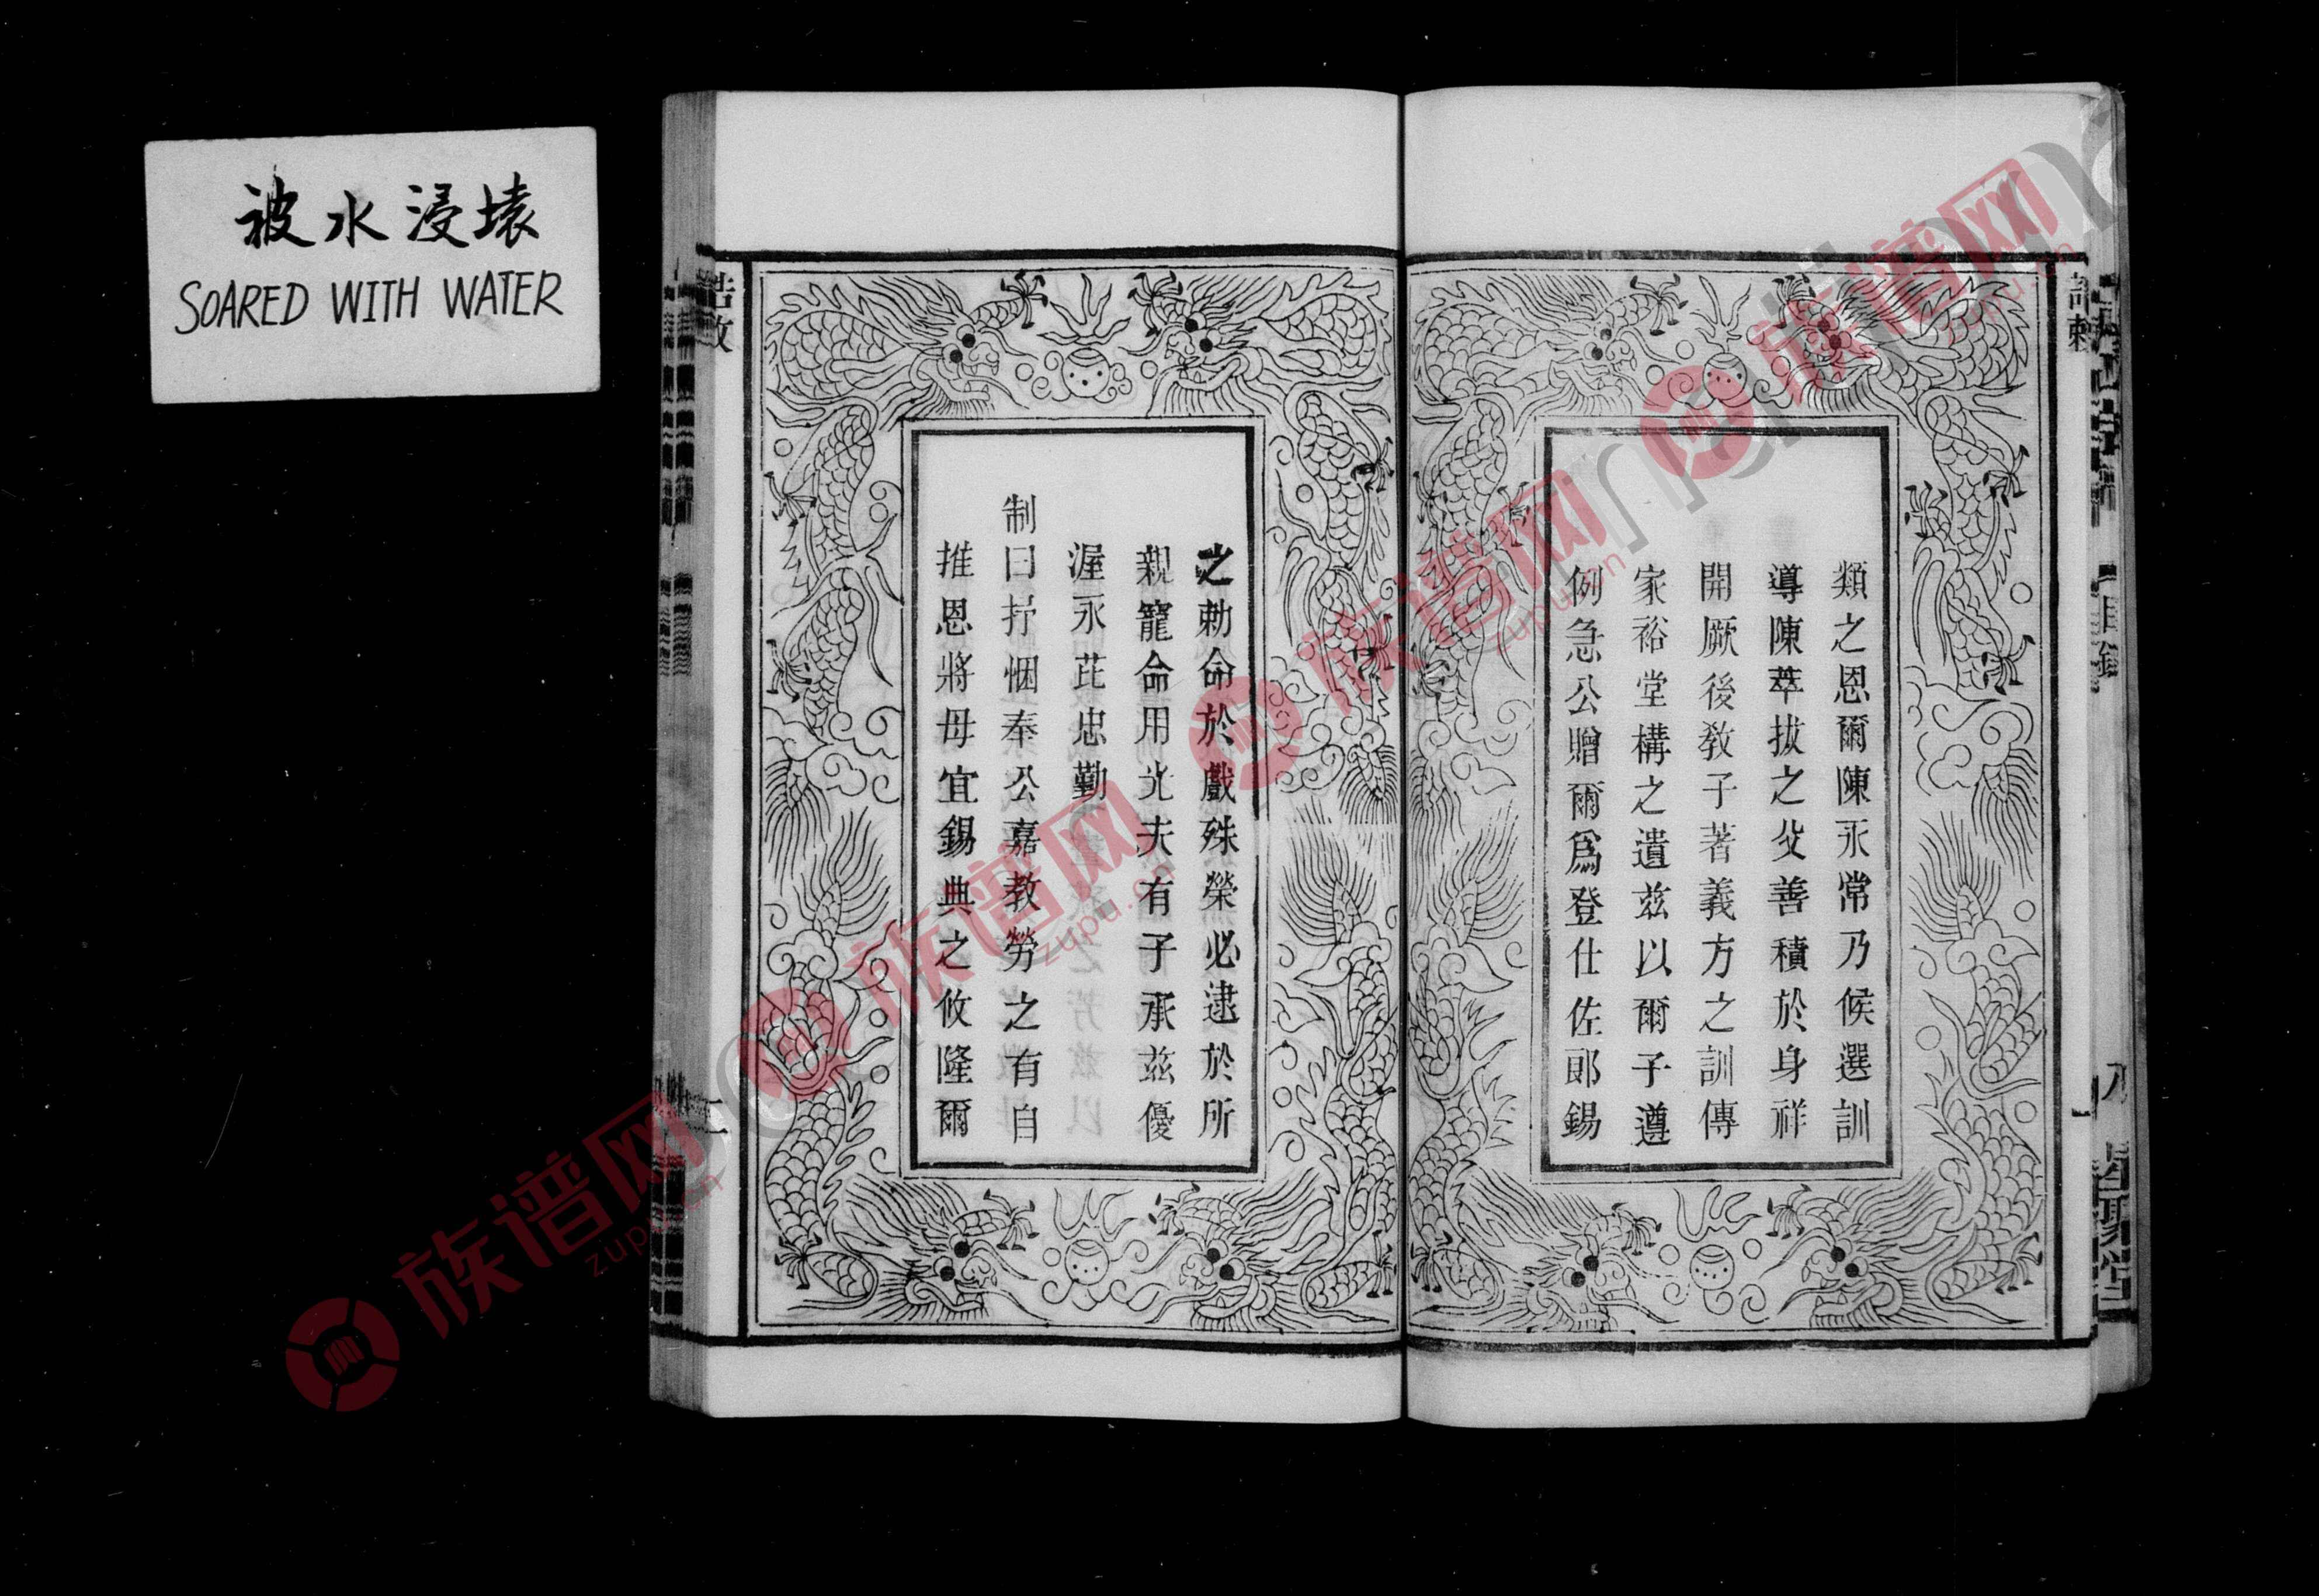 被水浸壊
SOARED WITH WATER
誥敕
類之恩爾陳永常乃候選訓
導陳萃拔之父善積於身祥
開厥後教子著義方之訓傳
家裕堂構之遺兹以爾子遵
例急公贈爾爲登仕佐郎錫
之勅命於戲殊榮必逮於所
親寵命用光夫有子承兹優
渥永茈忠勤
制曰抒悃奉公嘉教勞之有自
推恩將母宜錫典之攸隆爾
二
族谱网
zupu.cn
族谱网
zupu.cn
族谱网
zupu.cn
族谱网
zupu.cn